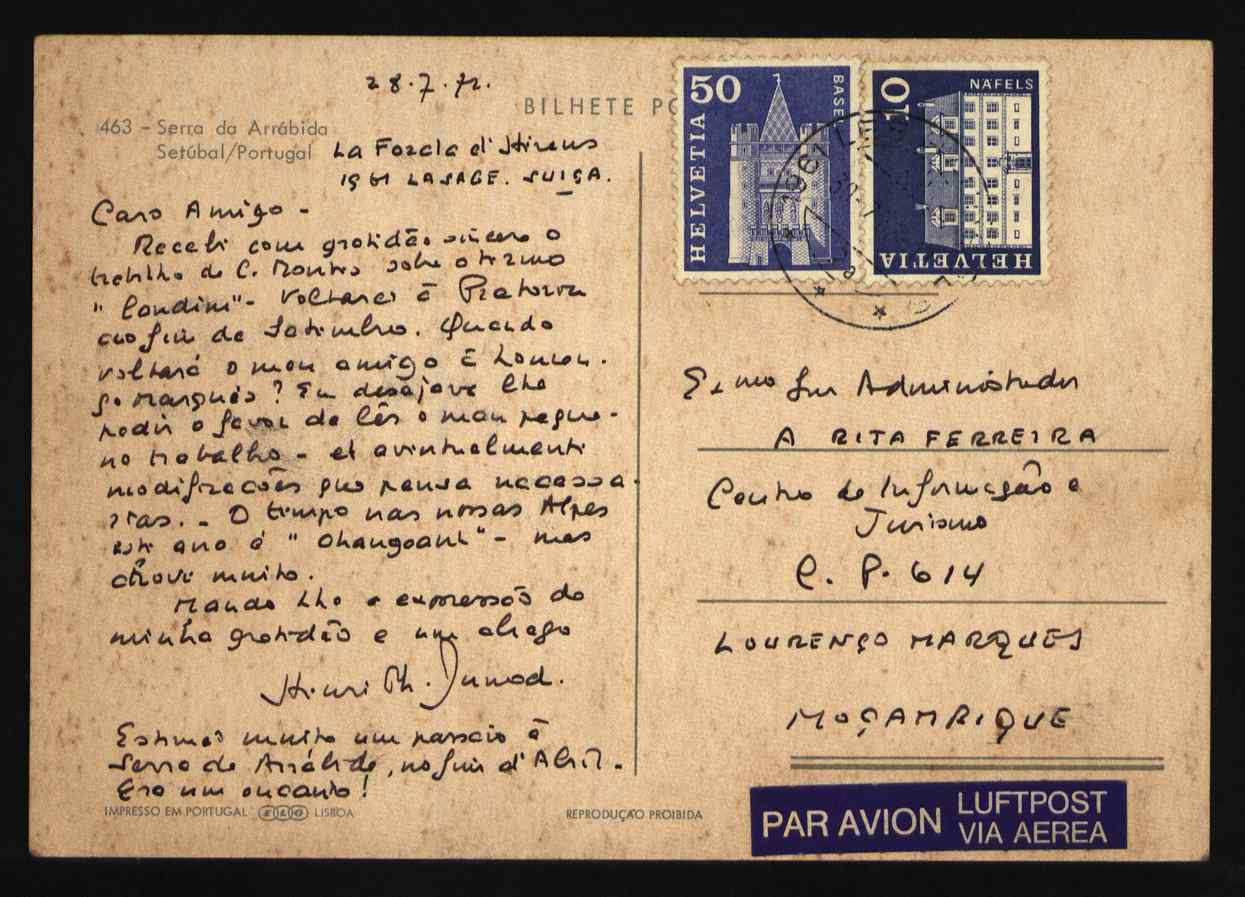 28.7.72.
BILHETE PO
463 – Serra da Arrábida
Setúbal/Portugal
La Forcla d'Hirens
1961 LA SAGE. SUIÇA.
Caro Amigo -
Recebi com gratidão sincera o
trabalho de C. Montez sobre o termo
"Londini" - Voltarei à Pretoria
ao fim de Setembro. Quando
voltará o meu amigo à Louren-
ço Marques? Eu desejava lhe
pedir o favor de lêr o meu peque-
no trabalho - et aventuelmente
modificações que pensa necessa-
rias. - O tempo nas nossas Alpes
este ano é " changeant" - mas
chove muito.
Mando lhe a expressão da
minha gratidão e um abraço
Henri Ph. Junod.
Estimei muito um passeio à
Serra de Arrábida, no fim d'Abril.
Era um encanto!
IMPRESSO EM PORTUGAL ELO LISBOA
REPRODUÇÃO PROIBIDA
50
HELVETIA
BASEL
10
NÄFELS
HELVETIA
Exmo Snr Administrador
A RITA FERREIRA
Centro de Informação e
Turismo
C. P. 614
LOURENÇO MARQUES
MOÇAMBIQUE
PAR AVION
LUFTPOST
VIA AEREA